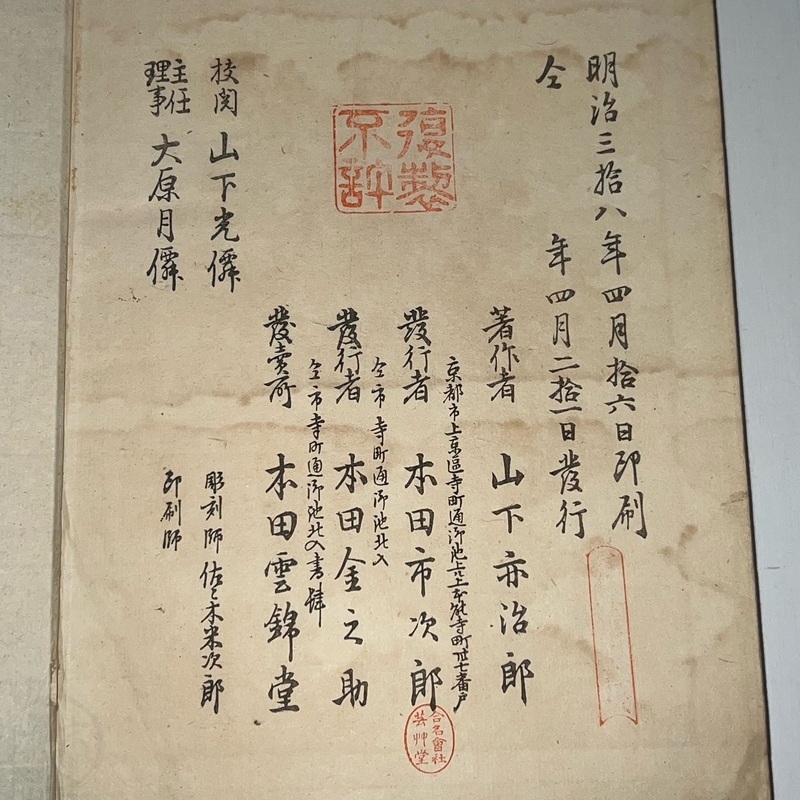 明治三拾八年四月拾六日印刷
仝 年四月二拾一日發行
著作者 山下亦治郎
京都市上京區寺町通御池上ル上本能寺町廿七番戸
發行者 本田市次郎
仝市寺町通御池北入
發行者 本田金之助
仝市寺町通御池北入書肆
發賣所 本田雲錦堂
復製
不許
校閲 山下光僊
主任
理事 大原月僊
彫刻師 佐々木米次郎
印刷師
合名會社
芸艸堂